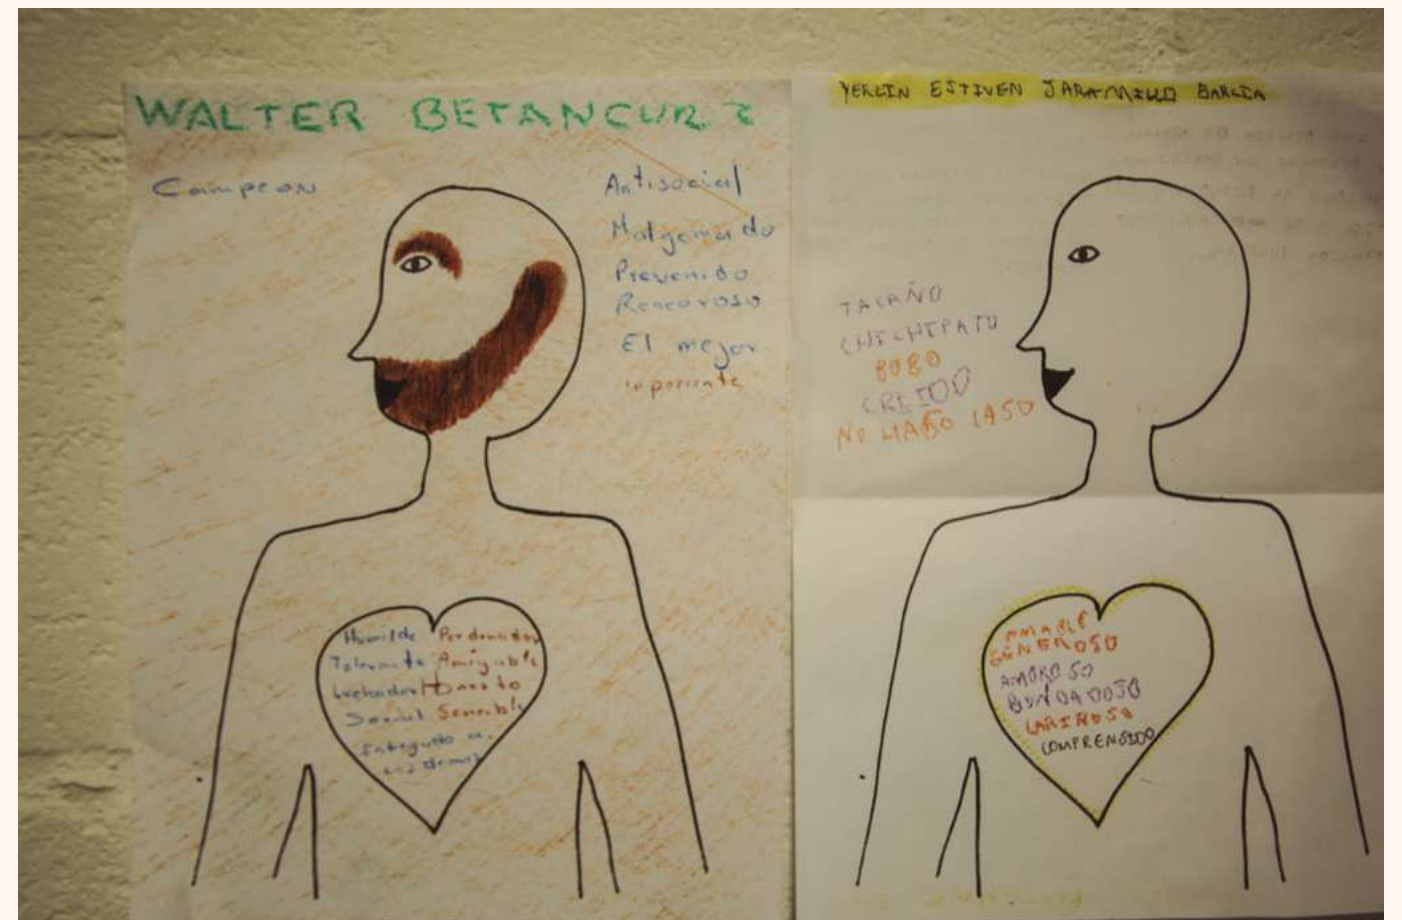 WALTER BETANCUR Z
Campeon
Antisocial
Malgeniado
Prevenido
Rencoroso
El mejor
imponente
Humilde Perdonador
Tolerante Amigable
Luchador Honesto
Social Sensible
Entregado a
los demas
YERLIN ESTIVEN JARAMILLO GARCIA
TACAÑO
CHICHIPATO
BOBO
CREIDO
NO HAGO CASO
AMABLE
GENEROSO
AMOROSO
BONDADOSO
CARIÑOSO
COMPRENSIVO